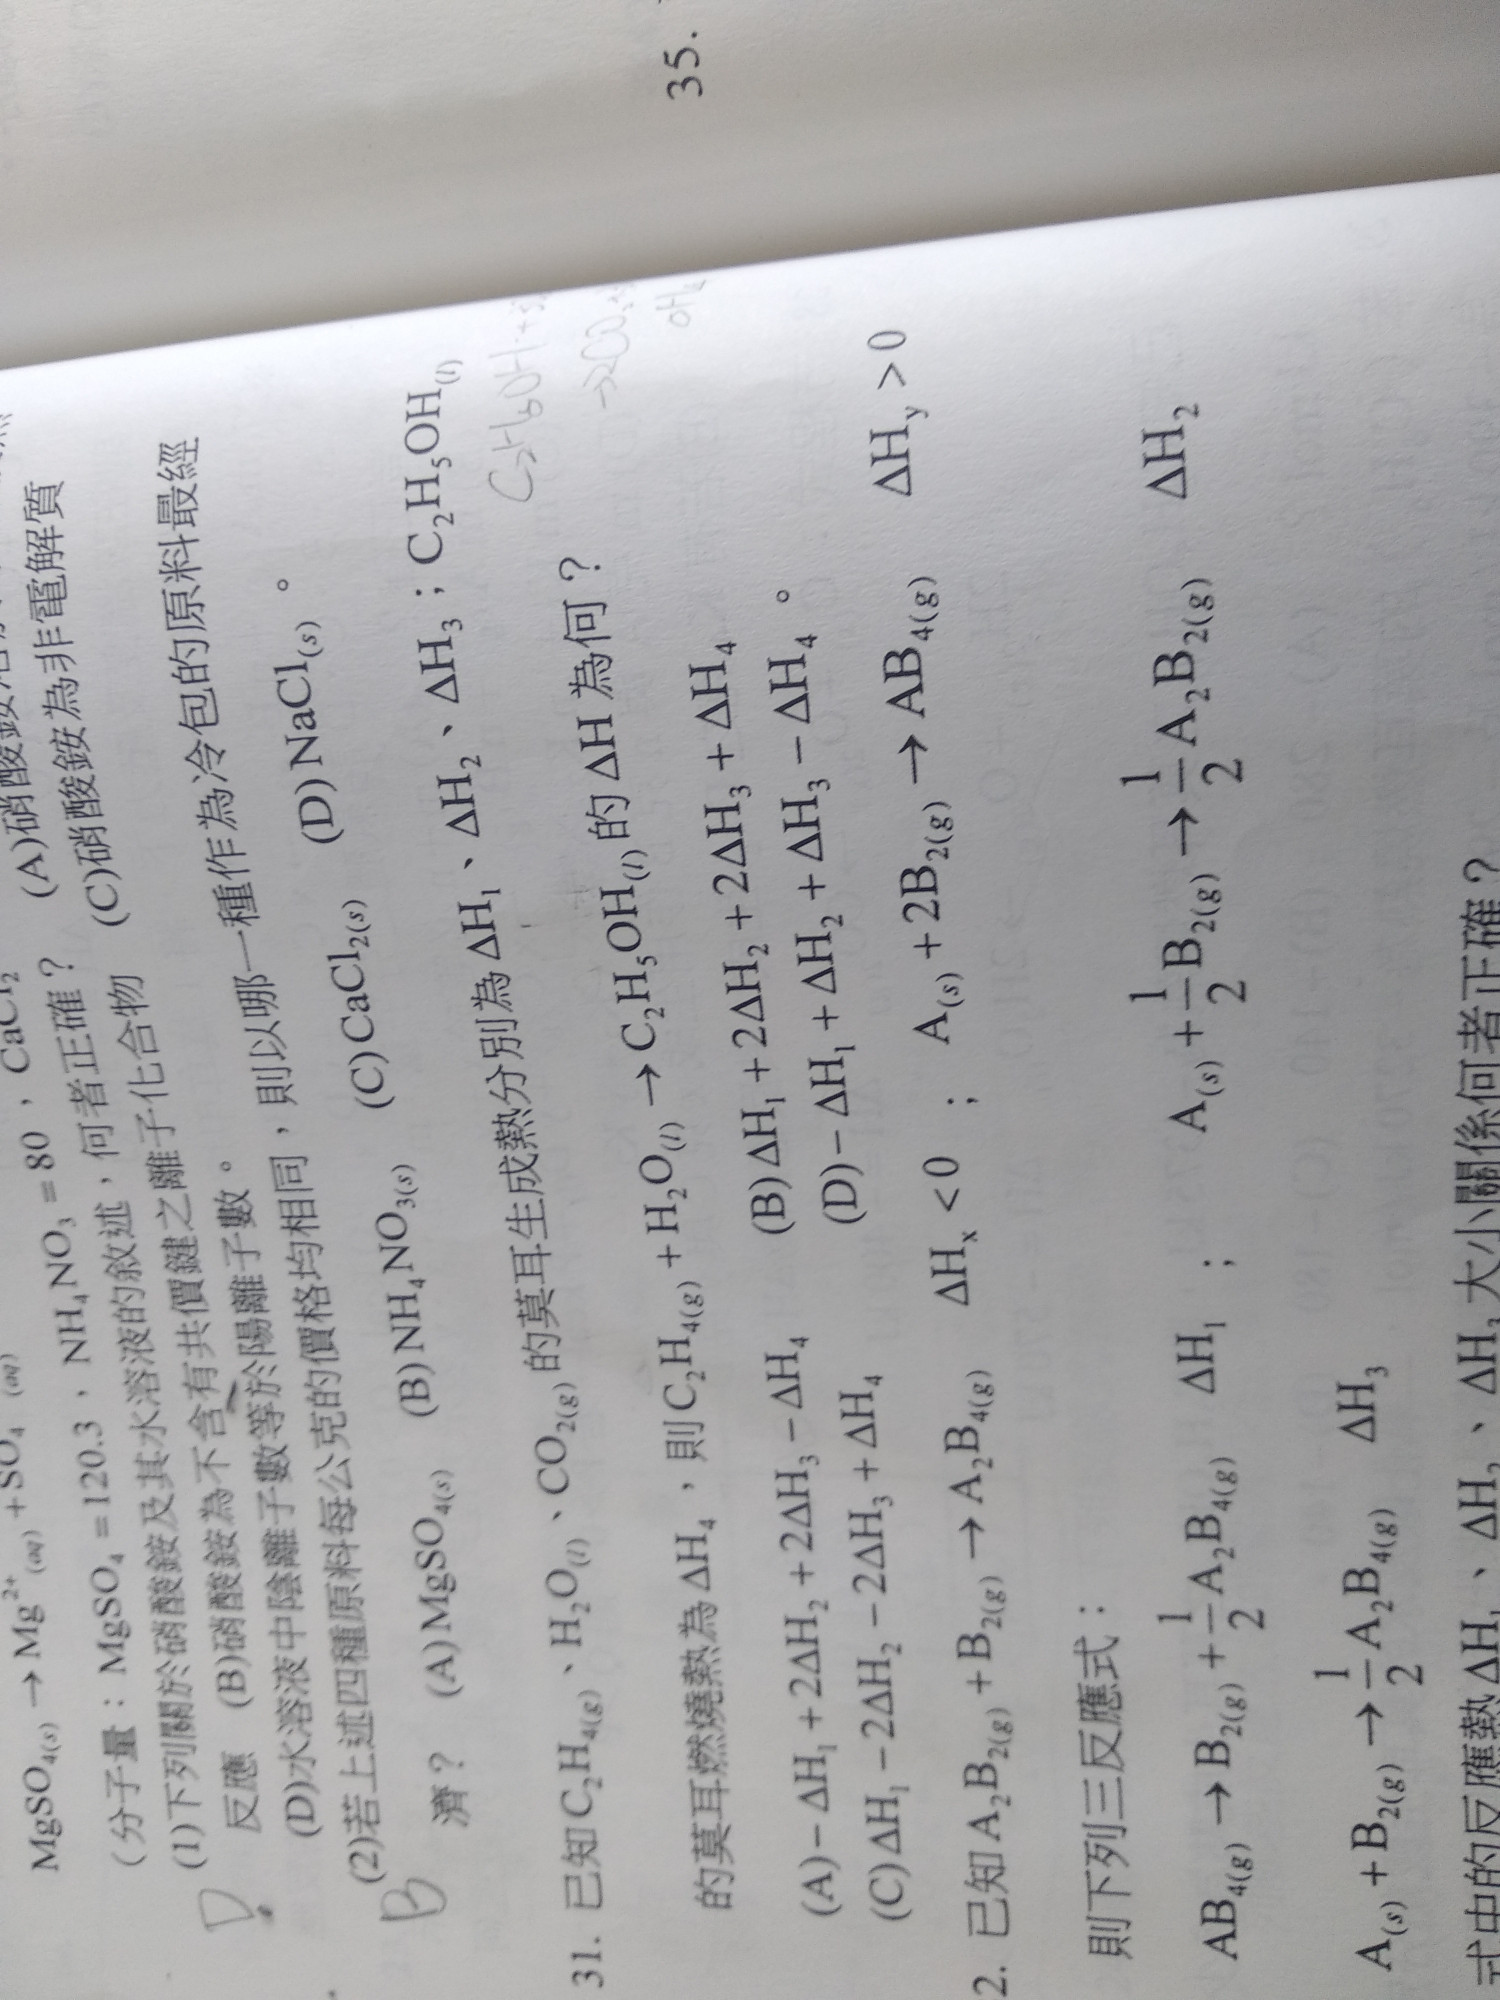 MgSO₄₍s₎ → Mg²⁺₍aq₎ + SO₄ ₍aq₎
(分子量:MgSO₄ = 120.3、NH₄NO₃ = 80、CaCl₂
(1)下列關於硝酸銨及其水溶液的敘述,何者正確? (A)硝酸銨
反應 (B)硝酸銨為不含有共價鍵之離子化合物 (C)硝酸銨為非電解質
(D)水溶液中陰離子數等於陽離子數。
(2)若上述四種原料每公克的價格均相同,則以哪一種作為冷包的原料最經
濟? (A) MgSO₄₍s₎ (B) NH₄NO₃₍s₎ (C) CaCl₂₍s₎ (D) NaCl₍s₎。
D
B
31. 已知 C₂H₄₍g₎、H₂O₍l₎、CO₂₍g₎ 的莫耳生成熱分別為 ΔH₁、ΔH₂、ΔH₃;C₂H₅OH₍l₎
的莫耳燃燒熱為 ΔH₄,則 C₂H₄₍g₎ + H₂O₍l₎ → C₂H₅OH₍l₎ 的 ΔH 為何?
(A) − ΔH₁ + 2ΔH₂ + 2ΔH₃ − ΔH₄ (B) ΔH₁ + 2ΔH₂ + 2ΔH₃ + ΔH₄
(C) ΔH₁ − 2ΔH₂ − 2ΔH₃ + ΔH₄ (D) − ΔH₁ + ΔH₂ + ΔH₃ − ΔH₄。
2. 已知 A₂B₂₍g₎ + B₂₍g₎ → A₂B₄₍g₎ ΔHₓ < 0 ; A₍s₎ + 2B₂₍g₎ → AB₄₍g₎ ΔHᵧ > 0
則下列三反應式:
AB₄₍g₎ → B₂₍g₎ + 1/2 A₂B₄₍g₎ ΔH₁ ; A₍s₎ + 1/2 B₂₍g₎ → 1/2 A₂B₂₍g₎ ΔH₂
A₍s₎ + B₂₍g₎ → 1/2 A₂B₄₍g₎ ΔH₃
式中的反應熱 ΔH₁、ΔH₂、ΔH₃ 大小關係何者正確?
35.